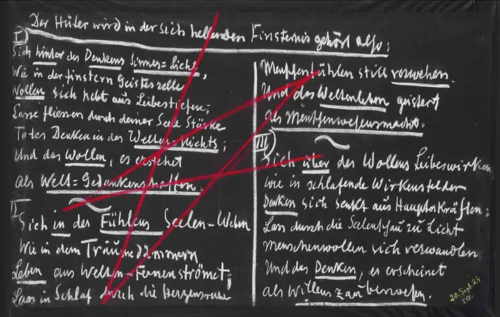 Der Hüter wird in der sich hellenden Finsternis gehört also:
I)
Sieh hinter des Denkens Sinnes-Licht,
Wie in der finstern Geisteszelle
Wollen sich hebt aus Leibestiefen;
Lasse fliessen durch deiner Seele Stärke
Totes Denken in das Welten-Nichts;
Und das Wollen, es erstehet
Als Welt-Gedankenschaffen.
II
Sieh in des Fühlens Seelen-Weben
Wie in dem Träumedämmern
Leben aus Welten-Fernen strömet;
Lass in Schlaf durch die Herzensruhe
Menschenfühlen still verwehen.
Und das Weltenleben geistert
Als Menschenwesensmacht.
III
Sieh über des Wollens Leibeswirken
Wie in schlafende Wirkensfelder
Denken sich senkt aus Haupteskräften;
Lass durch die Seelenschau zu Licht
Menschenwollen sich verwandeln
Und das Denken, es erscheinet
Als Willenszauberwesen.
20. Sept. 24